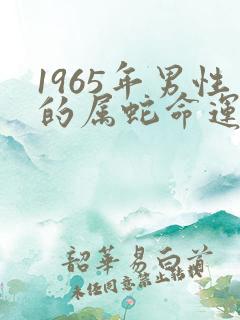 1965年男性
的属蛇命運
韶華易白首
未任同意禁止转接